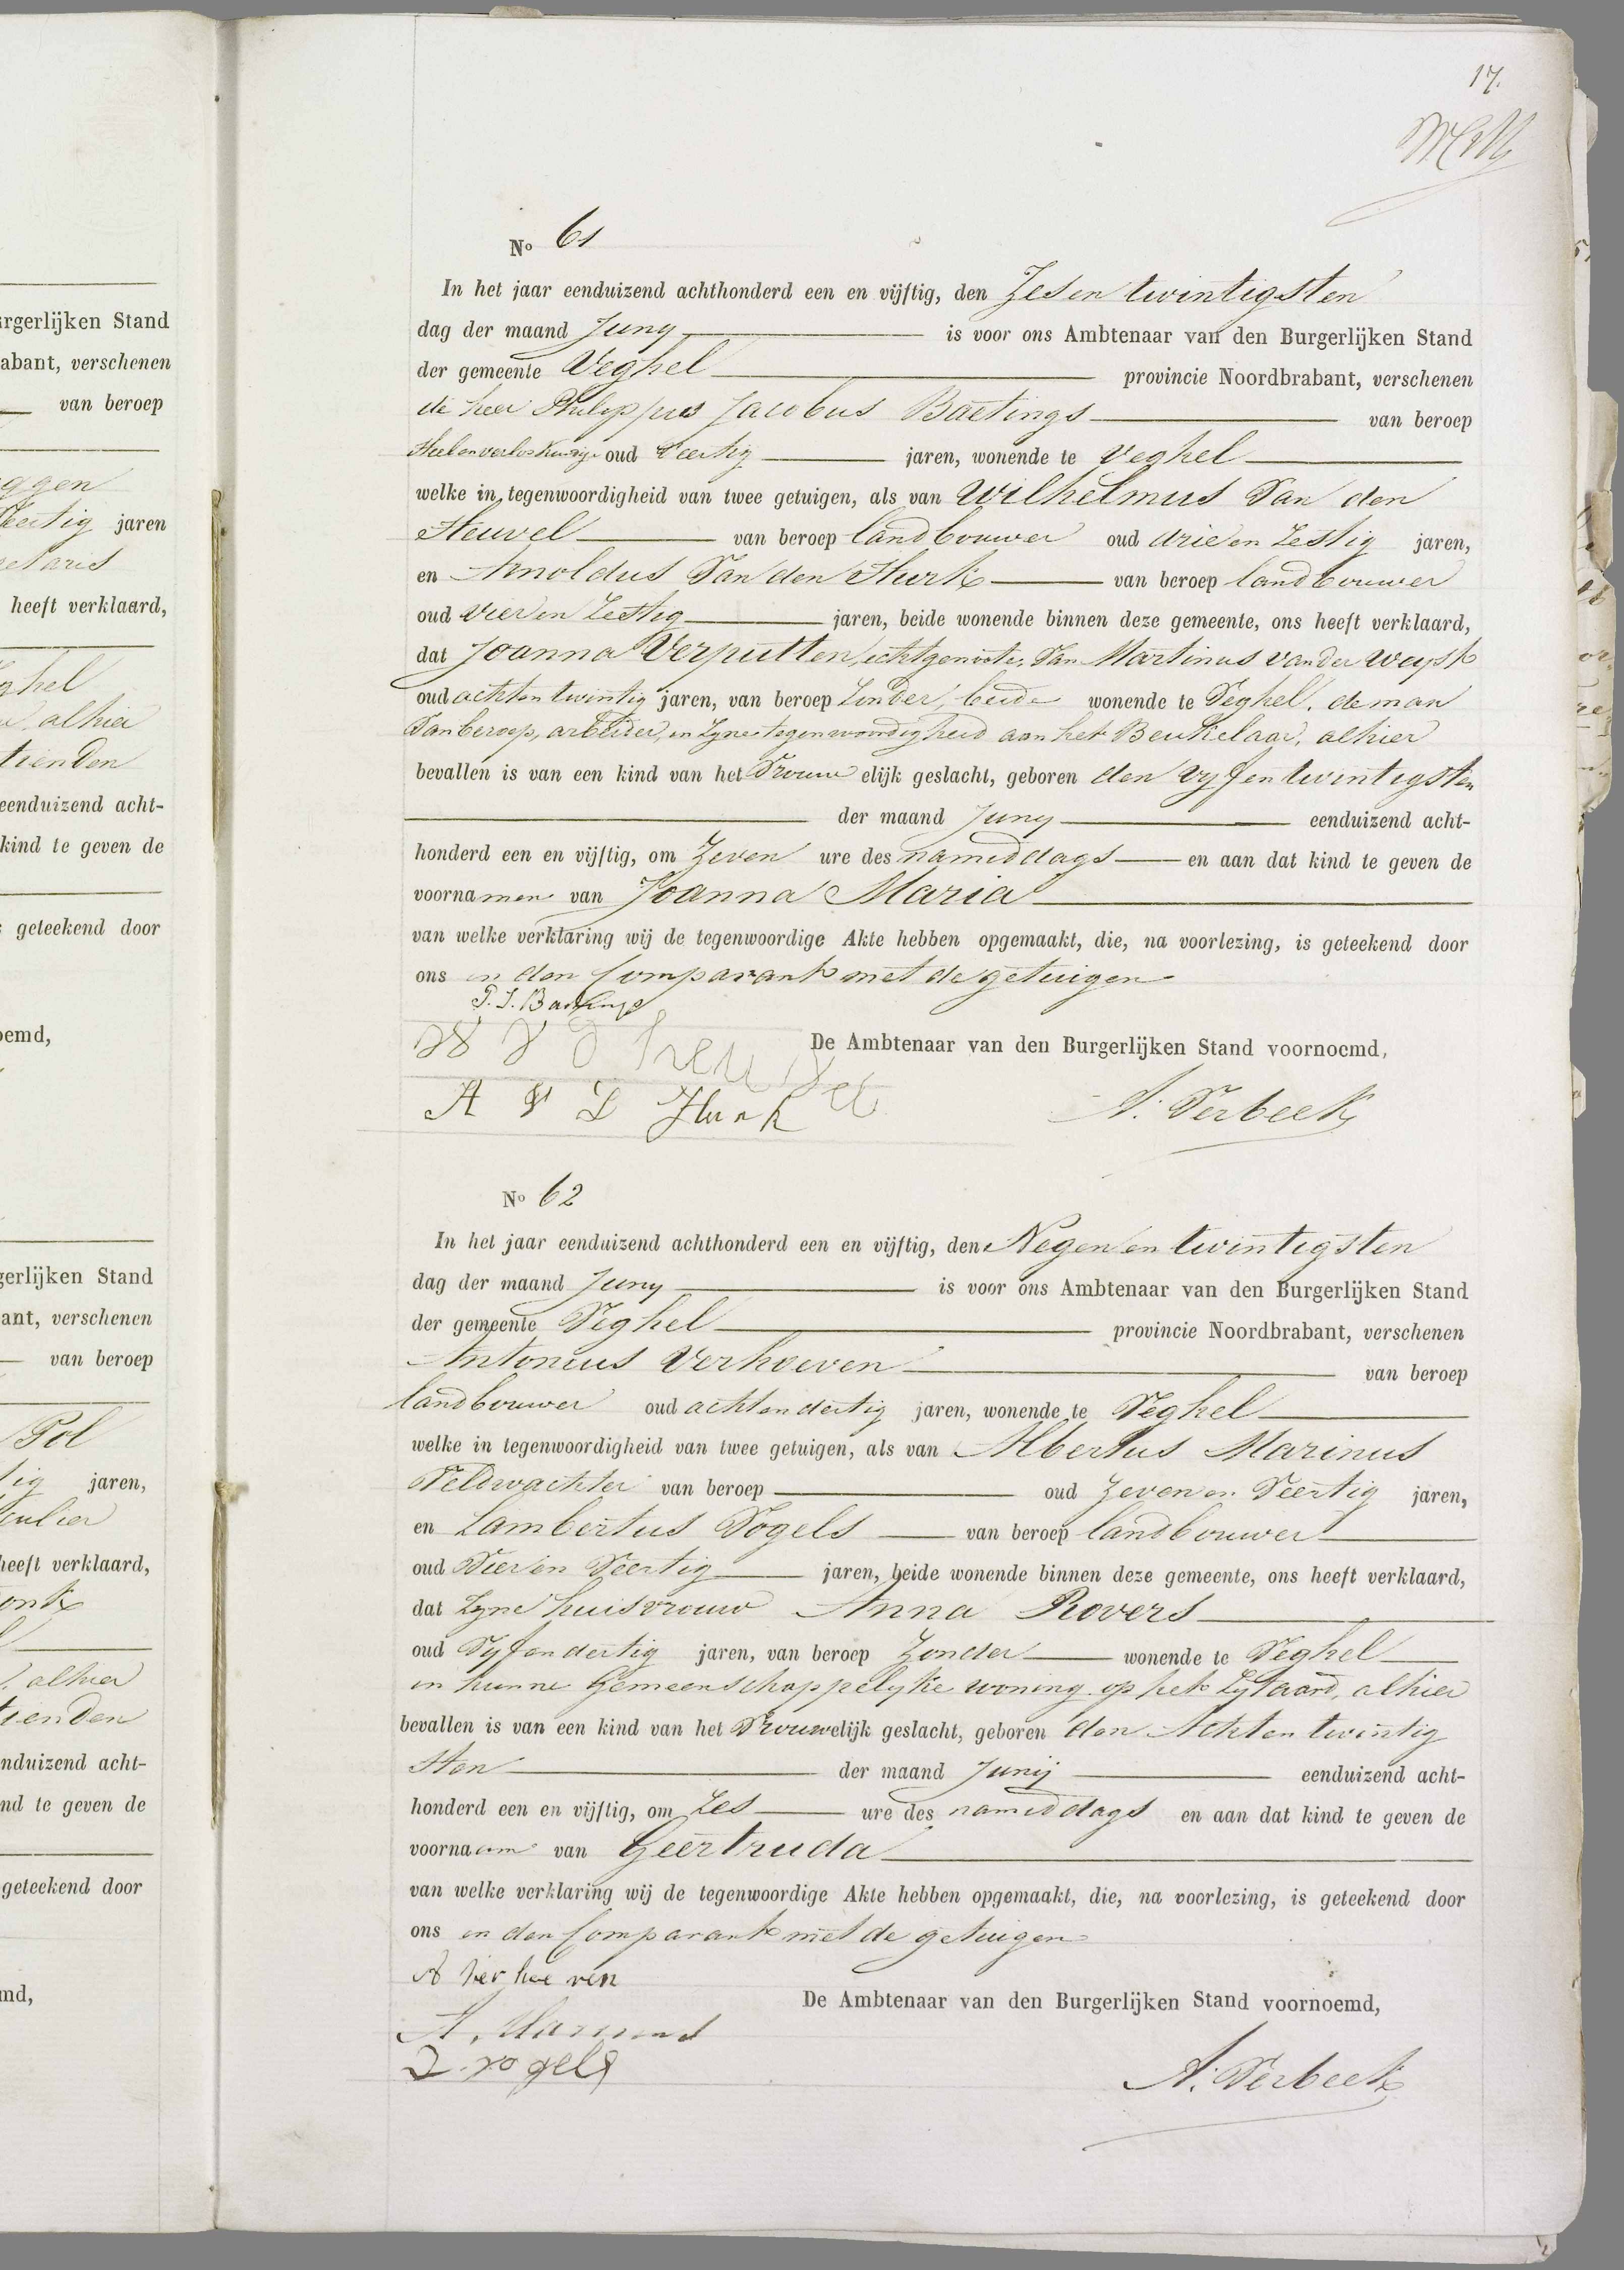 17.
No 61
In het jaar eenduizend achthonderd een en vijftig, den Zesentwintigsten
dag der maand Juny is voor ons Ambtenaar van den Burgerlijken Stand
der gemeente Veghel provincie Noordbrabant, verschenen
de heer Philippus Jacobus Baetings van beroep
Heel en verloskundige oud Veertig jaren, wonende te Veghel
welke in tegenwoordigheid van twee getuigen, als van Wilhelmus Van den
Heuvel van beroep landbouwer oud drieen Zestig jaren,
en Arnoldus Van den Hurk van beroep landbouwer
oud vieren Zestig jaren, beide wonende binnen deze gemeente, ons heeft verklaard,
dat Joanna Verputten, echtgenoote, Van Martinus van der Weyst
oud achtentwintig jaren, van beroep Zonder, beide wonende te Veghel, de man
Van beroep, arbeider, in Zyne tegenwoordigheid aan het Beukelaar, alhier
bevallen is van een kind van het Vrouwelijk geslacht, geboren den vyfentwintigsten
der maand Juny eenduizend acht-
honderd een en vijftig, om Zeven ure des namiddags en aan dat kind te geven de
voornamen van Joanna Maria
van welke verklaring wij de tegenwoordige Akte hebben opgemaakt, die, na voorlezing, is geteekend door
ons en den Comparant met de getuigen
P. J. Baetings
W V D heuvel
De Ambtenaar van den Burgerlijken Stand voornoemd,
A V D Hurk
A. Verbeek
No 62
In het jaar eenduizend achthonderd een en vijftig, den Negenentwintigsten
dag der maand Juny is voor ons Ambtenaar van den Burgerlijken Stand
der gemeente Veghel provincie Noordbrabant, verschenen
Antonius Verhoeven van beroep
landbouwer oud achtendertig jaren, wonende te Veghel
welke in tegenwoordigheid van twee getuigen, als van Albertus Marinus
Veldwachter van beroep oud Zevenen Veertig jaren,
en Lambertus Vogels van beroep landbouwer
oud Vieren Veertig jaren, beide wonende binnen deze gemeente, ons heeft verklaard,
dat Zyne huisvrouw Anna Rovers
oud Vyfendertig jaren, van beroep Zonder wonende te Veghel
in hunne Gemeenschappelyke woning op het Zytaard, alhier
bevallen is van een kind van het Vrouwelijk geslacht, geboren den Achtentwintig
sten der maand Junij eenduizend acht-
honderd een en vijftig, om Zes ure des namiddags en aan dat kind te geven de
voornaam van Geertruda
van welke verklaring wij de tegenwoordige Akte hebben opgemaakt, die, na voorlezing, is geteekend door
ons en den Comparant met de getuigen
A verhoeven
De Ambtenaar van den Burgerlijken Stand voornoemd,
A. Marinus
L. vogels
A. Verbeek